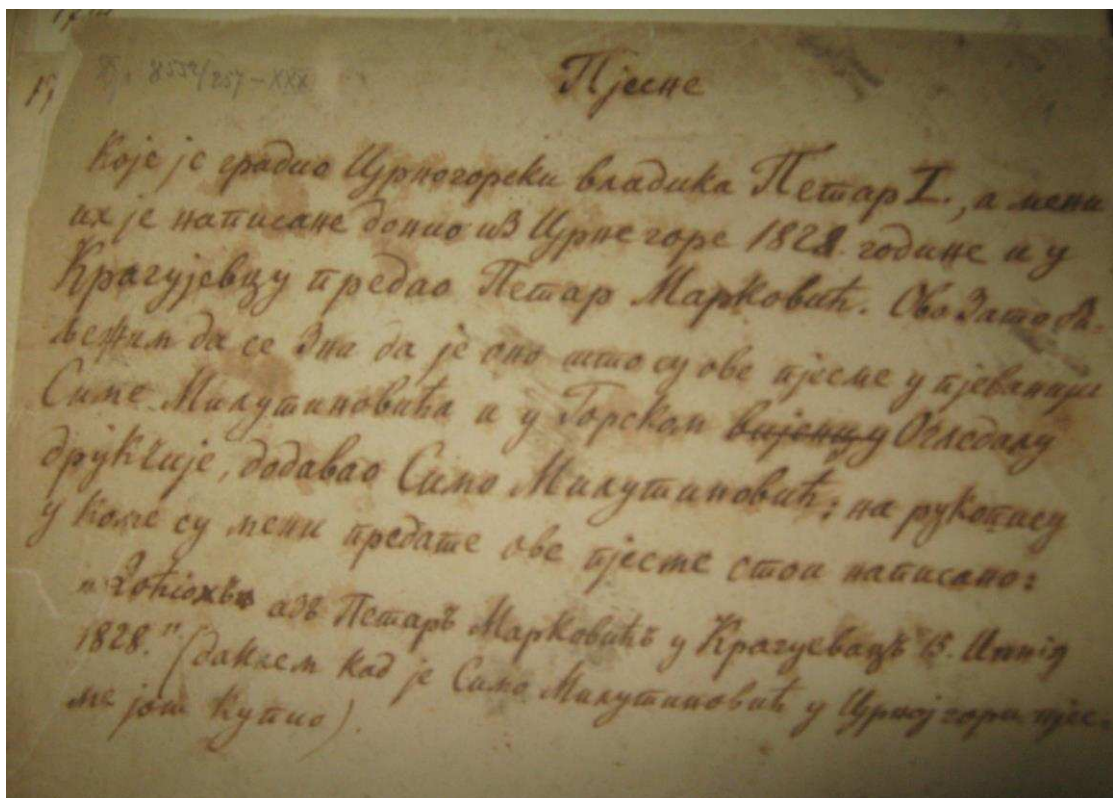 Пјесне
Које је градио Црногорски владика Петар I., а мени
их је написане донио из Црне горе 1828. године и у
Крагујевцу предао Петар Марковић. Ово Зато би-
љежим да се Зна да је оно што су ове пјесме у пјеванији
Симе Милутиновића и у Горском вијенцу Огледалу
друкчије, додавао Симо Милутиновић; на рукопису
у коме су мени предате ове пјесме стои написано:
адъ Петаръ Марковићъ у Крагуевацъ 15. Иннія
1828." (дакле кад је Симо Милутиновић у Црној гори пјес-
ме још купио).